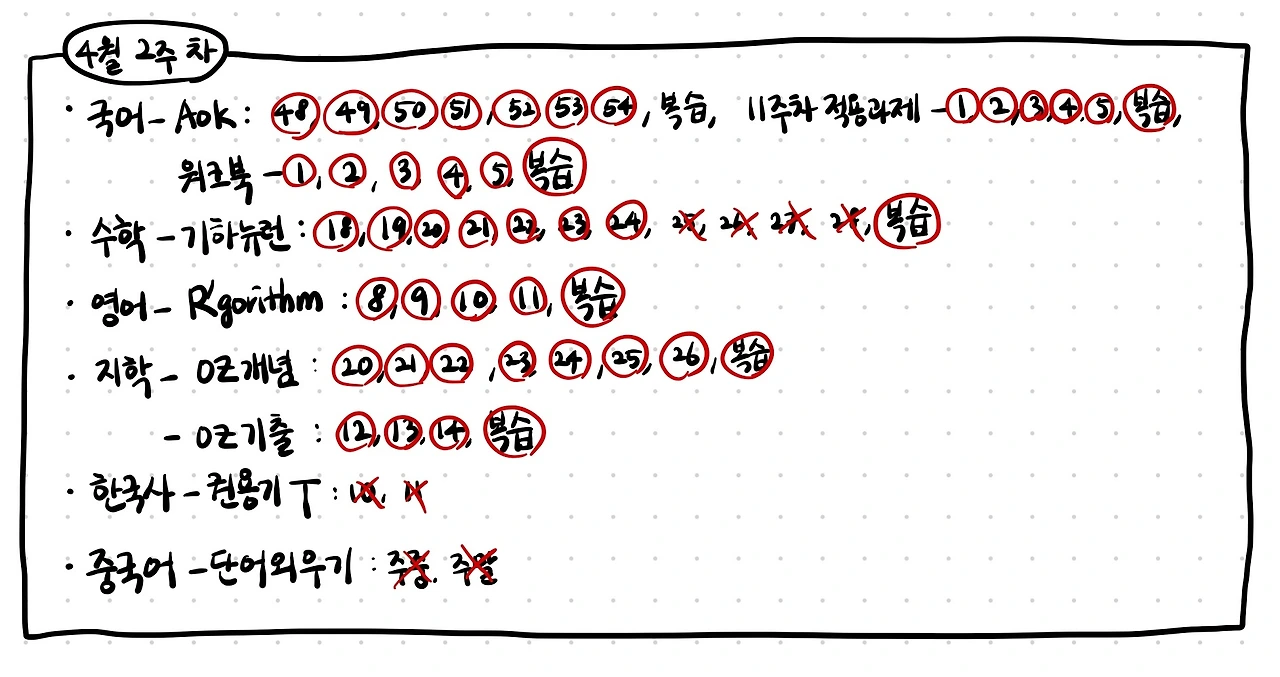 4월 2주차
· 국어 - AOK : 48, 49, 50, 51, 52, 53, 54, 복습, 11주차 적용과제 - 1, 2, 3, 4, 5, 복습,
워크북 - 1, 2, 3, 4, 5, 복습
· 수학 - 기하뉴런 : 18, 19, 20, 21, 22, 23, 24, 25, 26, 27, 28, 복습
· 영어 - R'gorithm : 8, 9, 10, 11, 복습
· 지학 - OZ개념 : 20, 21, 22, 23, 24, 25, 26, 복습
- OZ기출 : 12, 13, 14, 복습
· 한국사 - 권용기 T : 10, 11
· 중국어 - 단어외우기 : 주중, 주말